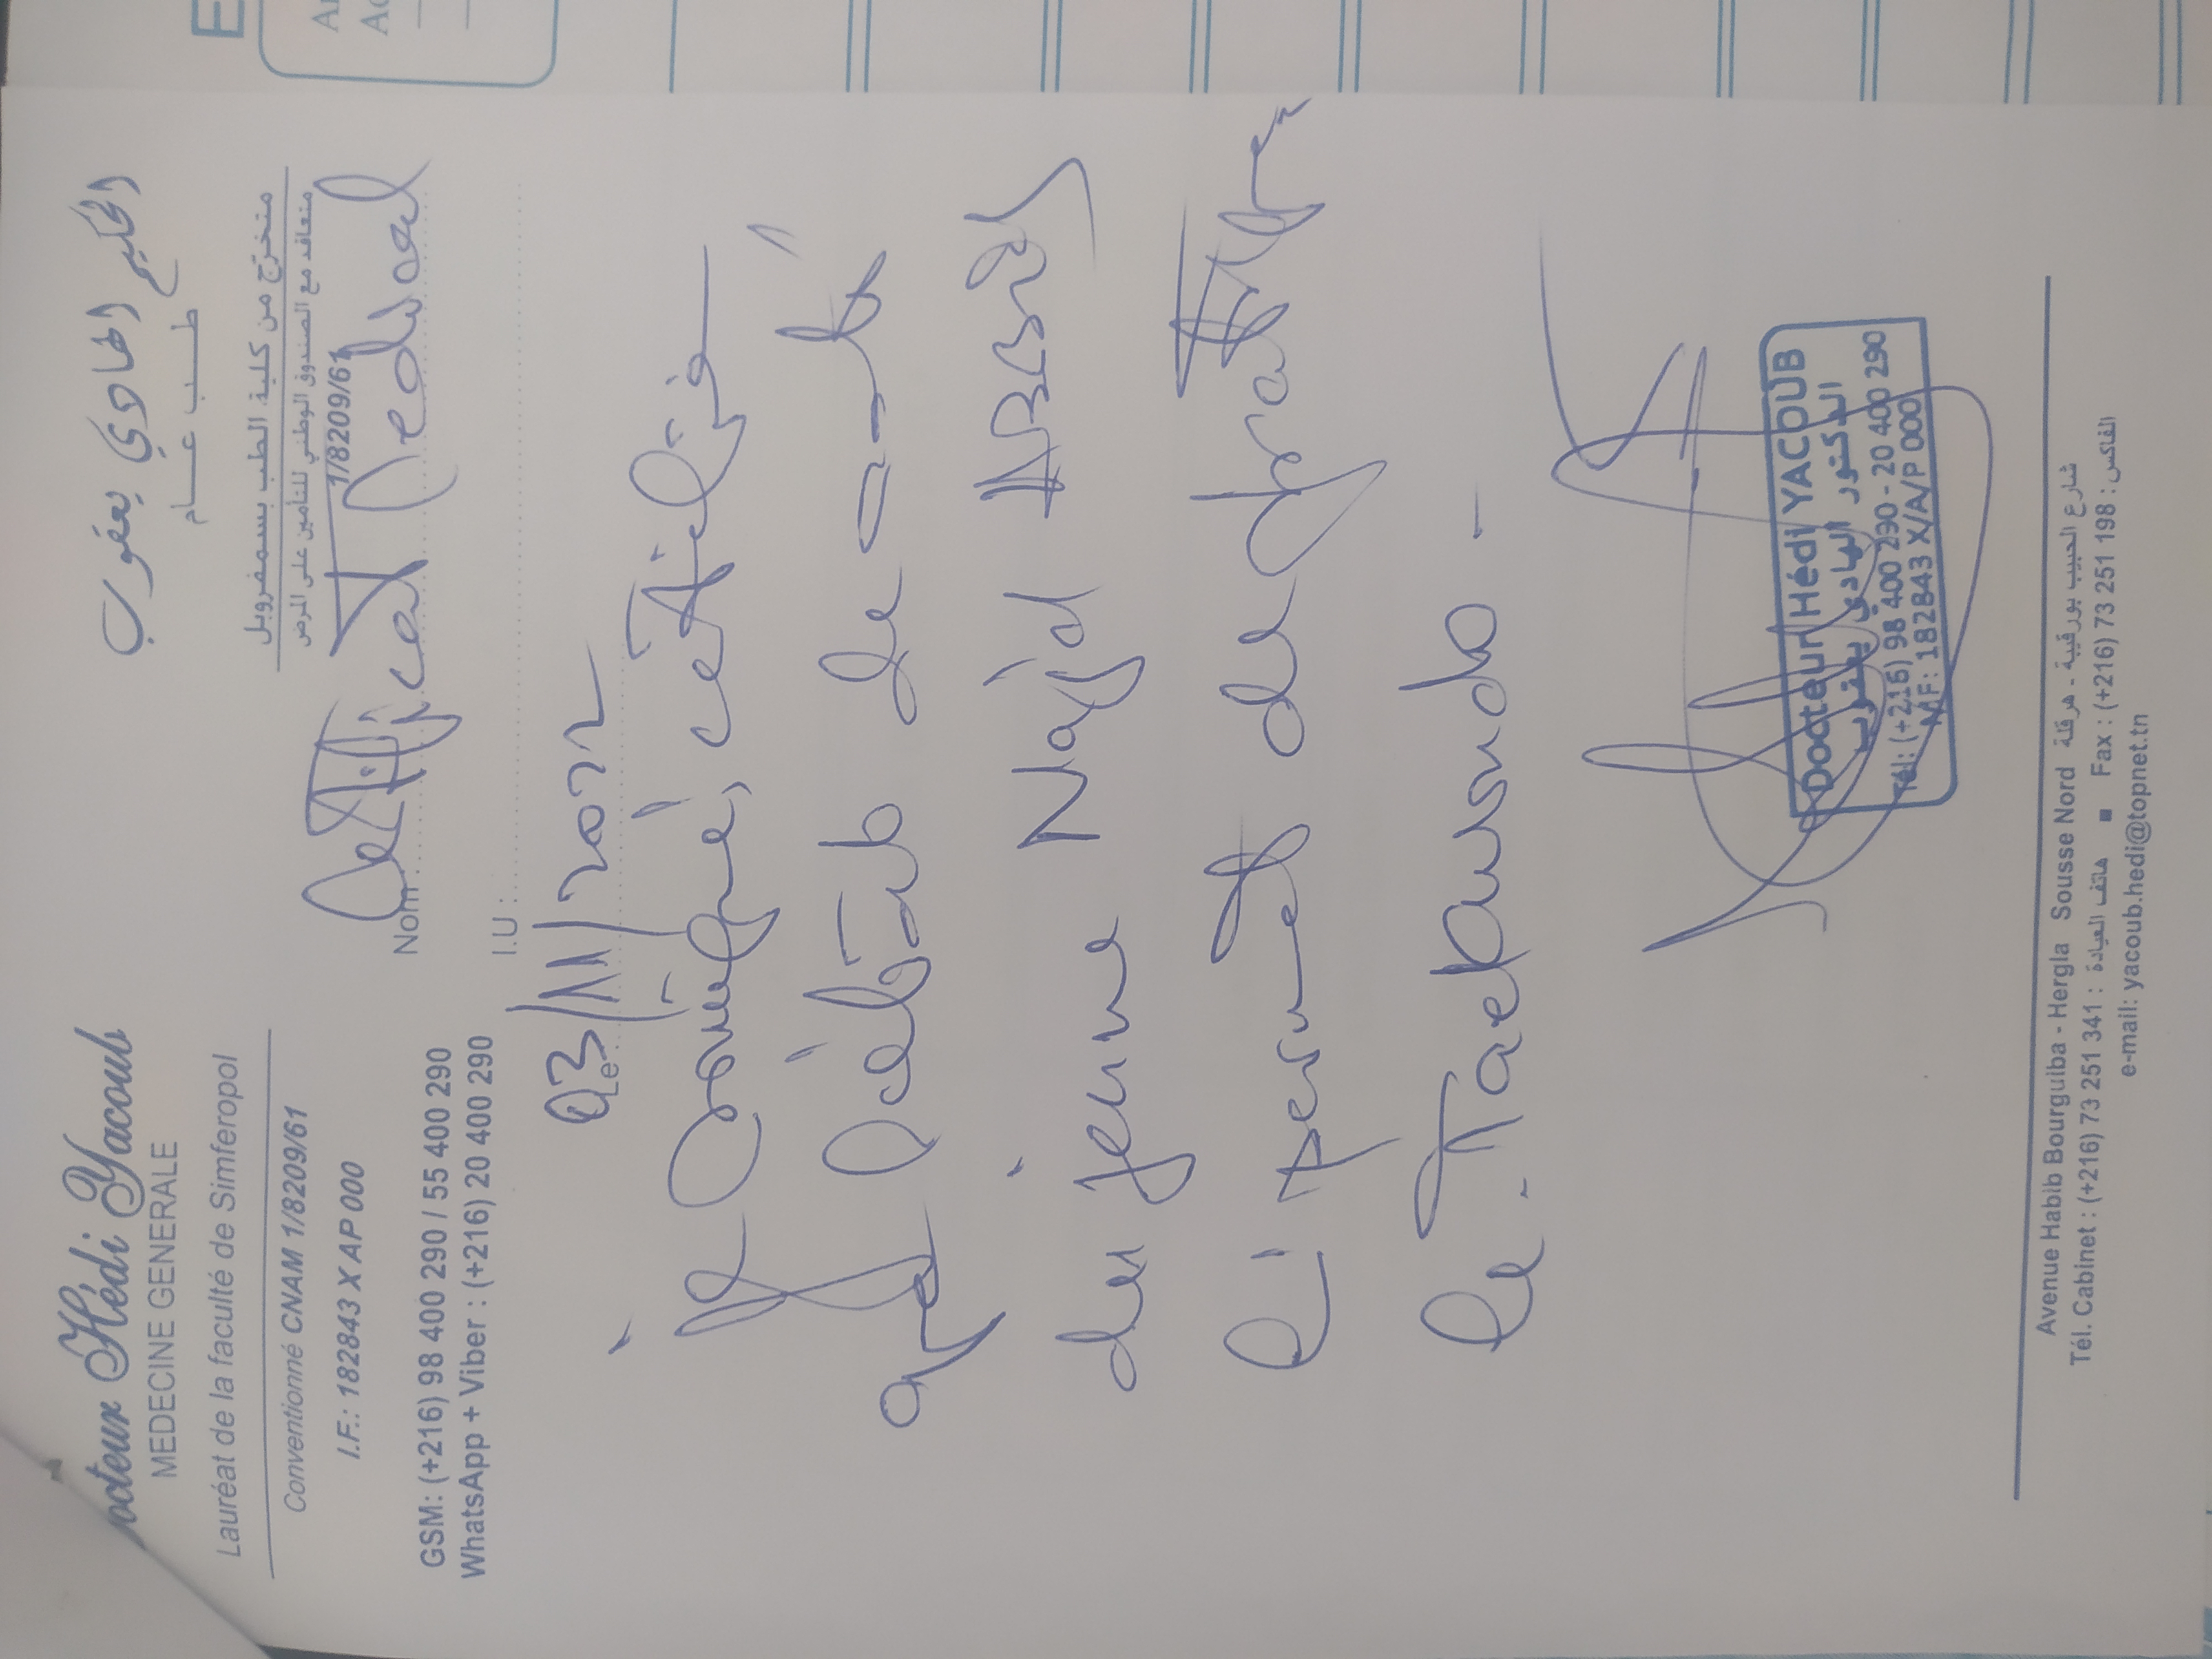 Docteur Hédi Yacoub
MEDECINE GENERALE
Lauréat de la faculté de Simferopol
Conventionné CNAM 1/8209/61
I.F.: 182843 X AP 000
GSM: (+216) 98 400 290 / 55 400 290
WhatsApp + Viber : (+216) 20 400 290
الحكيم الهادي يعقوب
طب عام
متخرّج من كلية الطب بسمفروبل
متعاقد مع الصندوق الوطني للتأمين على المرض
1/8209/61
Certificat Médical
Nom
I.U :
Le 03/11/2022
Je Soussigné, certifie
que l'état de santé
du jeune Najd
lui permet de pratiquer
le Taekwondo -
Docteur Hédi YACOUB
الدكتور الهادي يعقوب
Tél: (+216) 98 400 290 - 20 400 290
MF: 182843 X/A/P 000
Avenue Habib Bourguiba - Hergla Sousse Nord شارع الحبيب بورقيبة - هرقلة
Tél. Cabinet : (+216) 73 251 341 : هاتف العيادة ■ Fax : (+216) 73 251 198 : الفاكس
e-mail: yacoub.hedi@topnet.tn